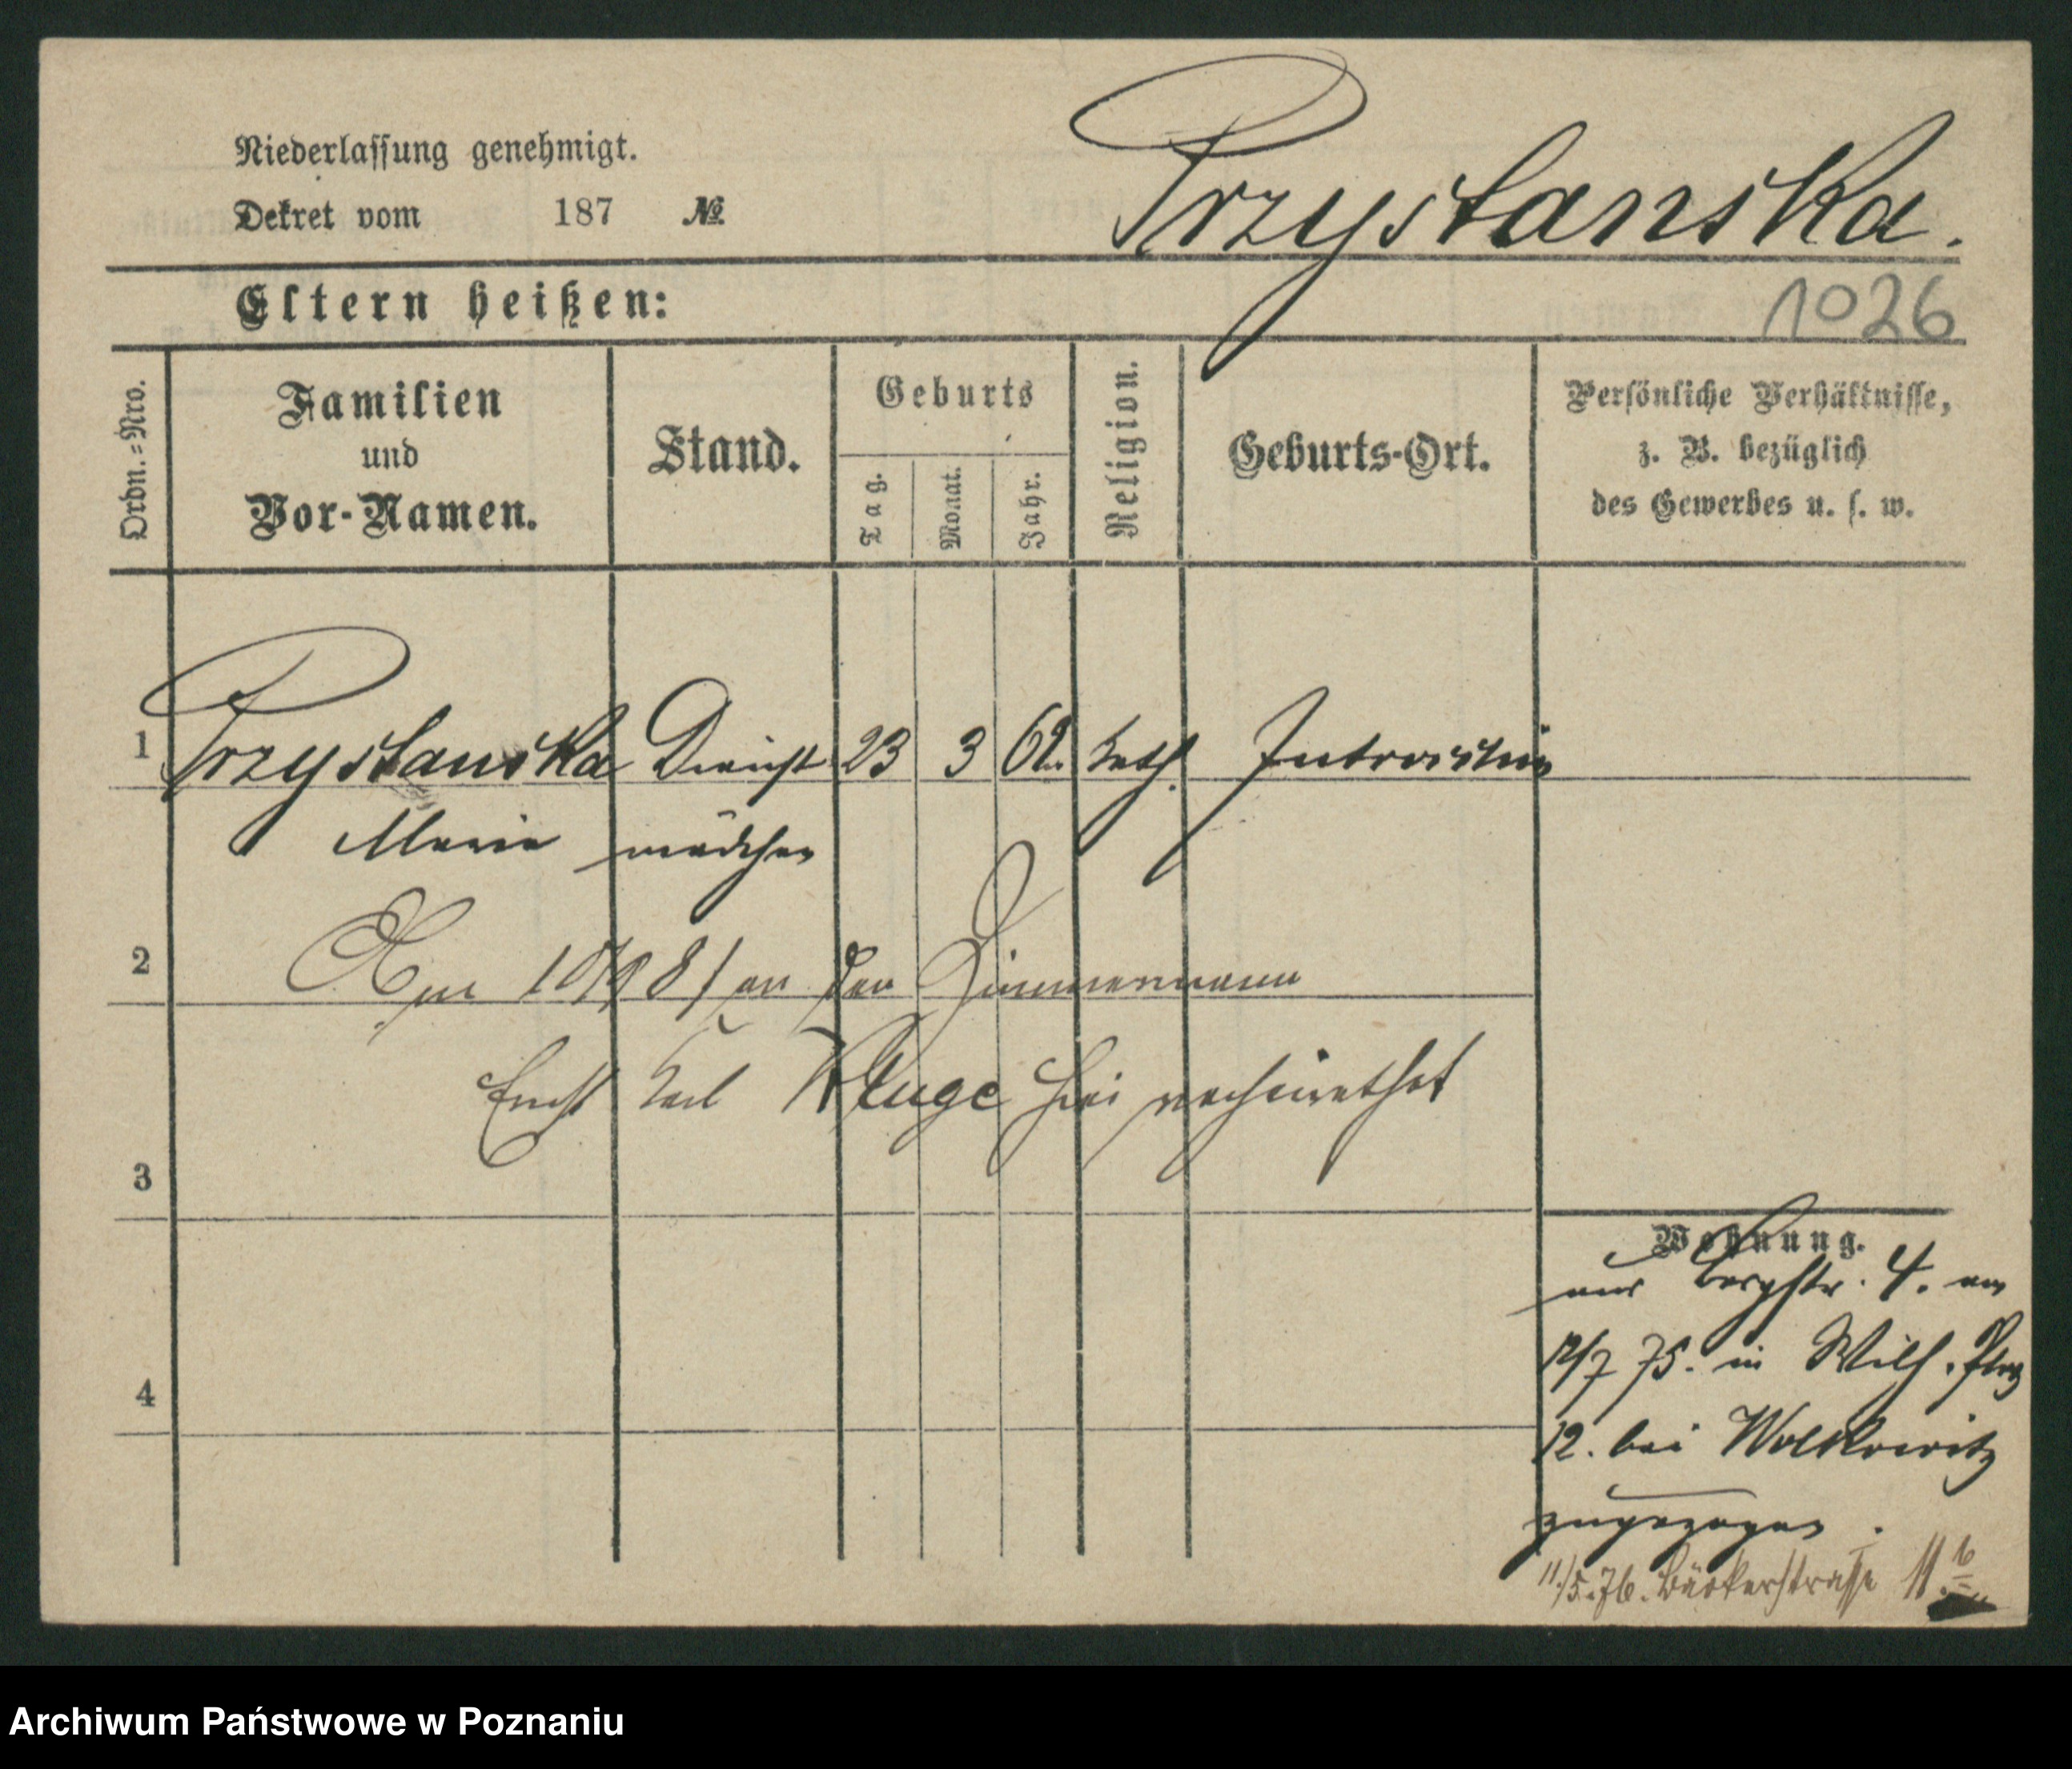 Niederlassung genehmigt.
Dekret vom 187 №
Przystanska.
Eltern heißen:
1026
Ordn.=Nro.
Familien
und
Vor-Namen.
Stand.
Geburts
Tag.
Monat.
Jahr.
Religion.
Geburts-Ort.
Persönliche Verhältnisse,
z. B. bezüglich
des Gewerbes u. s. w.
1 Przystanska Dienst 23 3 62. kath.
Marie mädchen
2
an den Zimmermann
Ernst Karl Kluge hier verheirathet
3
4
Wohnung.
aus Bergstr. 4. am
12/7 75. in Wilh. Platz
12. bei Wolkowitz
zugezogen.
11./5.76. Bäckerstrasse 11
Archiwum Państwowe w Poznaniu